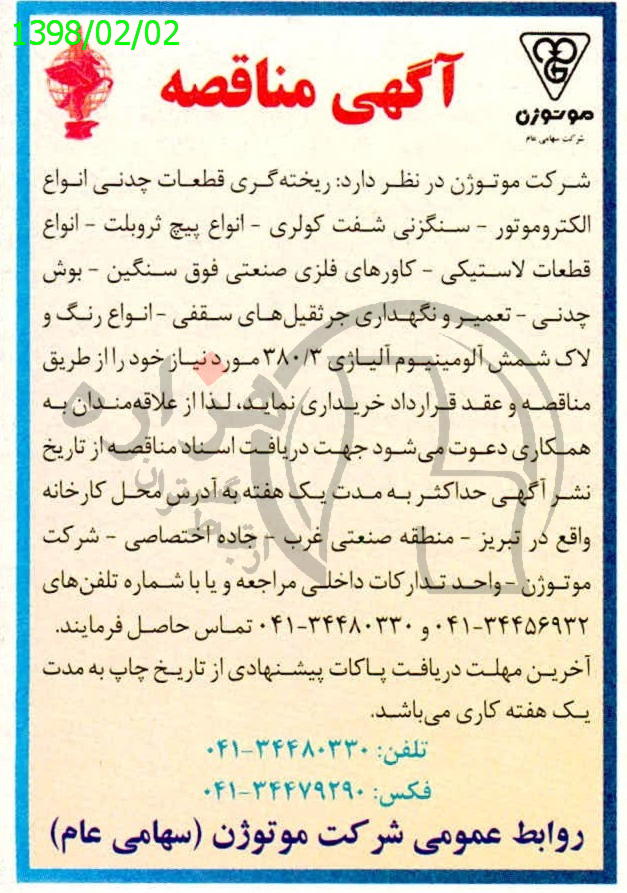 1398/02/02
موتوژن
شرکت سهامی عام
آگهی مناقصه
شرکت موتوژن در نظر دارد: ریخته‌گری قطعات چدنی انواع
الکتروموتور - سنگزنی شفت کولری - انواع پیچ ثروبلت - انواع
قطعات لاستیکی - کاورهای فلزی صنعتی فوق سنگین - بوش
چدنی - تعمیر و نگهداری جرثقیل‌های سقفی - انواع رنگ و
لاک شمش آلومینیوم آلیاژی ۳۸۰/۳ مورد نیاز خود را از طریق
مناقصه و عقد قرارداد خریداری نماید، لذا از علاقه‌مندان به
همکاری دعوت می‌شود جهت دریافت اسناد مناقصه از تاریخ
نشر آگهی حداکثر به مدت یک هفته به آدرس محل کارخانه
واقع در تبریز - منطقه صنعتی غرب - جاده اختصاصی - شرکت
موتوژن - واحد تدارکات داخلی مراجعه و یا با شماره تلفن‌های
۰۴۱-۳۴۴۵۶۹۳۲ و ۰۴۱-۳۴۴۸۰۳۳۰ تماس حاصل فرمایند.
آخرین مهلت دریافت پاکات پیشنهادی از تاریخ چاپ به مدت
یک هفته کاری می‌باشد.
تلفن: ۰۴۱-۳۴۴۸۰۳۳۰
فکس: ۰۴۱-۳۴۴۷۹۲۹۰
روابط عمومی شرکت موتوژن (سهامی عام)